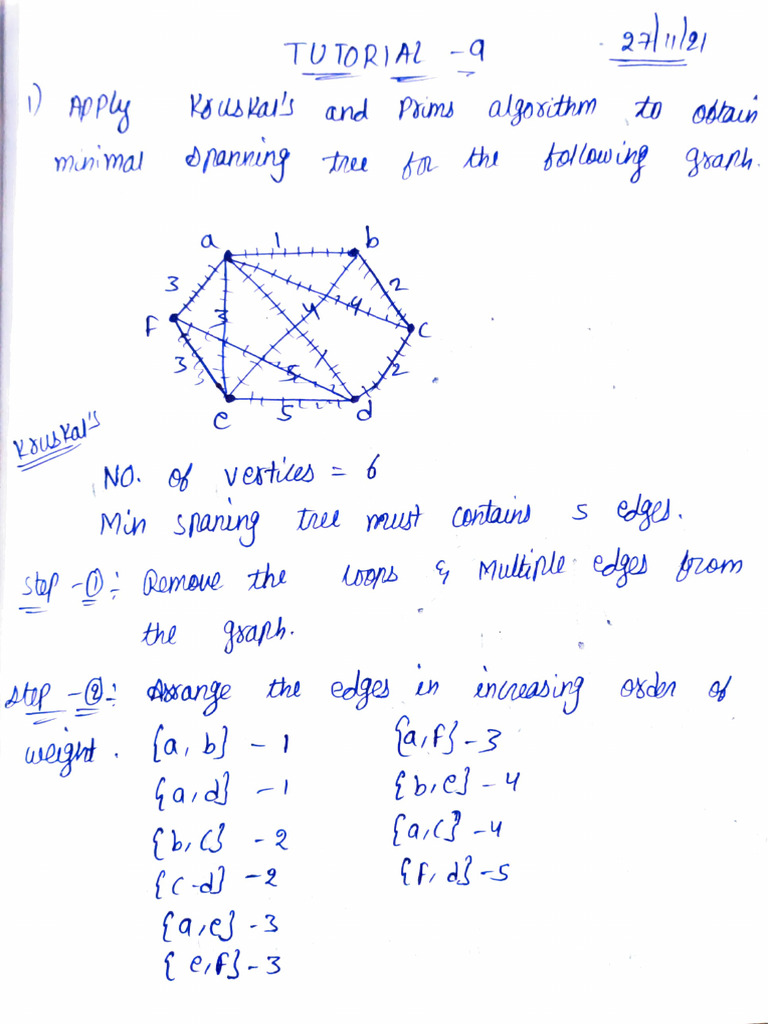 TUTORIAL - 9
27/11/21
1) Apply Kruskal's and Prims algorithm to obtain
minimal spanning tree for the following graph.
a 1 b
3 2
f 3 4 4 c
1
3 5 2
e 5 d
Kruskal's
NO. of vertices = 6
Min spaning tree must contains 5 edges.
Step - ① :- Remove the loops & Multiple edges from
the graph.
Step - ② :- Arrange the edges in increasing order of
weight. {a, b} - 1 {a, f} - 3
{a, d} - 1 {b, e} - 4
{b, c} - 2 {a, c} - 4
{c - d} - 2 {f, d} - 5
{a, e} - 3
{e, f} - 3